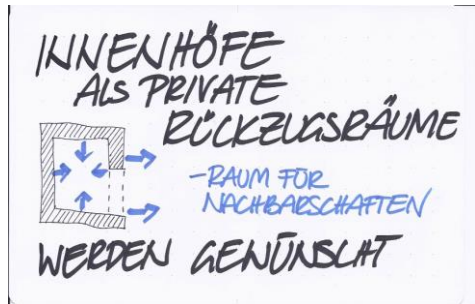 INNENHÖFE
ALS PRIVATE
RÜCKZUGSRÄUME
- RAUM FÜR
NACHBARSCHAFTEN
WERDEN GEWÜNSCHT